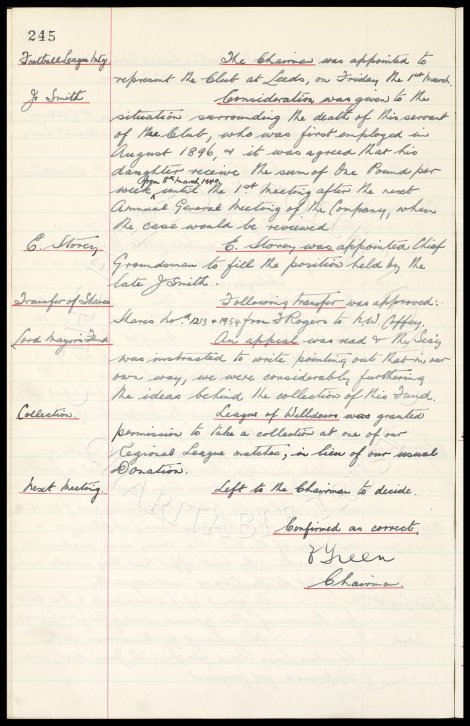 245
Football League Mtg The Chairman was appointed to
represent the Club at Leeds, on Friday the 1st March.
Jn Smith Consideration was given to the
situation surrounding the death of this servant
of the Club, who was first employed in
August 1896, & it was agreed that his
daughter receive the sum of One Pound per
from 8th March 1940
week until the 1st Meeting after the next
Annual General Meeting of the Company, when
the case would be reviewed
E. Storey E. Storey was appointed Chief
Groundsman to fill the position held by the
late J Smith.
Transfer of Shares Following transfer was approved:-
Shares No.s 1213 & 1954 from F Rogers to N.W. Coffey.
Lord Mayor's Fund An appeal was read & the Secy
was instructed to write pointing out that in our
own way, we were considerably furthering
the ideas behind the collection of this Fund.
Collection League of Welldoers was granted
permission to take a collection at one of our
Regional League matches, in lieu of our usual
Donation.
Next Meeting Left to the Chairman to decide.
Confirmed as correct,
Green
Chairman.